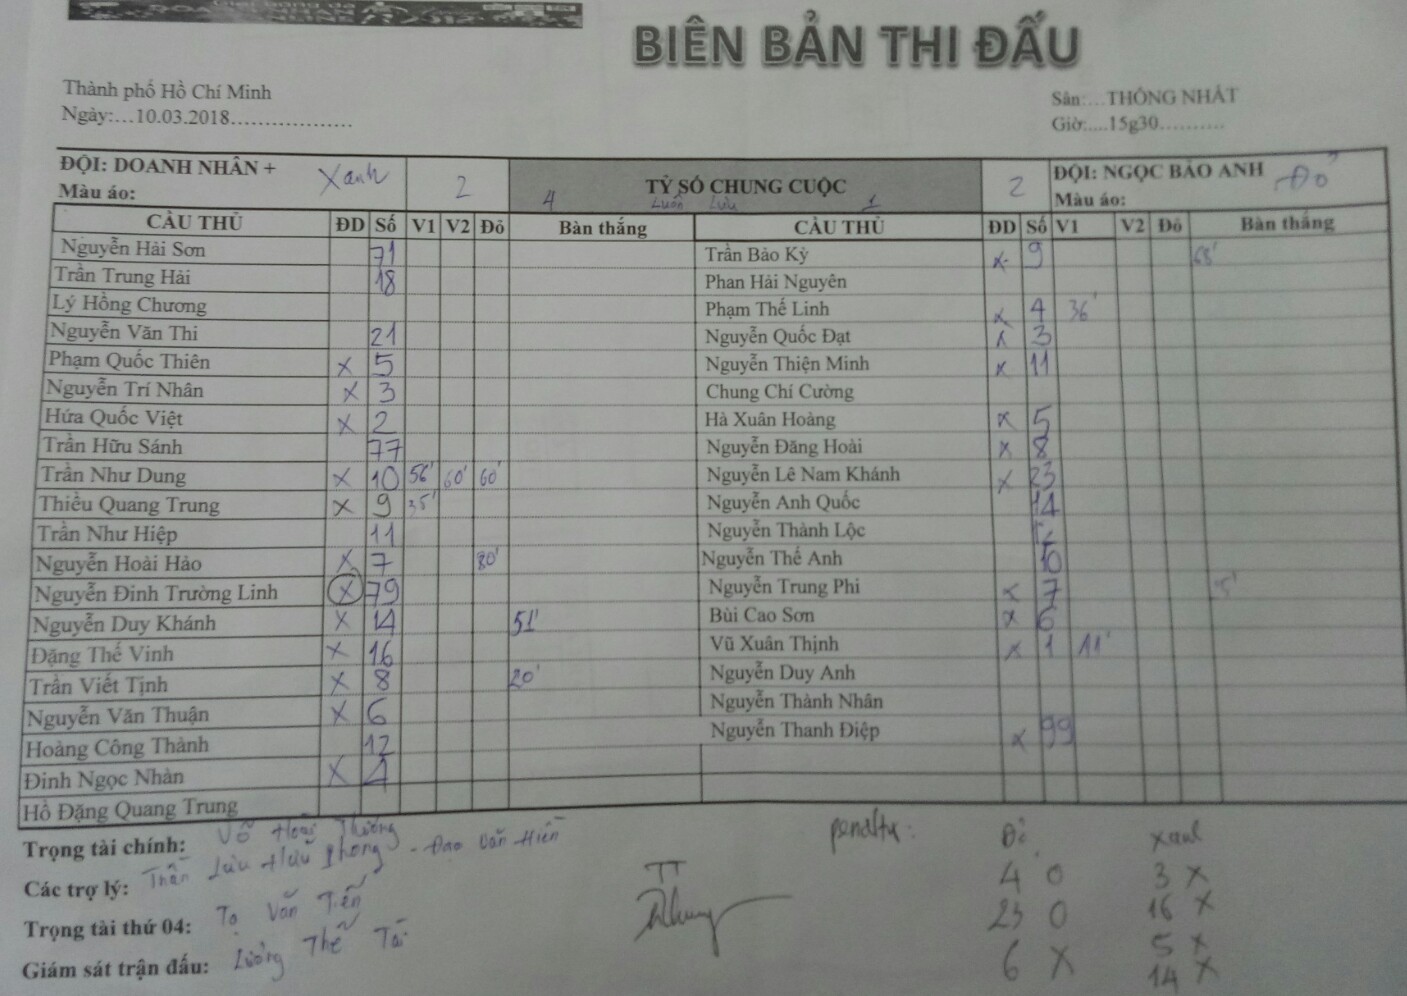 BIÊN BẢN THI ĐẤU
Thành phố Hồ Chí Minh
Ngày:...10.03.2018...................
Sân:...THỐNG NHẤT
Giờ:.....15g30..........
ĐỘI: DOANH NHÂN +
Màu áo: Xanh 2 4 TỶ SỐ CHUNG CUỘC Luân Lưu 1 2 ĐỘI: NGỌC BẢO ANH
Màu áo: Đỏ
CẦU THỦ ĐD Số V1 V2 Đỏ Bàn thắng CẦU THỦ ĐD Số V1 V2 Đỏ Bàn thắng
Nguyễn Hải Sơn 71 Trần Bảo Kỳ x 9 68'
Trần Trung Hải 18 Phan Hải Nguyên
Lý Hồng Chương Phạm Thế Linh x 4 36'
Nguyễn Văn Thi 21 Nguyễn Quốc Đạt x 3
Phạm Quốc Thiên x 5 Nguyễn Thiện Minh x 11
Nguyễn Trí Nhân x 3 Chung Chí Cường
Hứa Quốc Việt x 2 Hà Xuân Hoàng x 5
Trần Hữu Sánh 77 Nguyễn Đăng Hoài x 8
Trần Như Dung x 10 56' 60' 60' Nguyễn Lê Nam Khánh x 23
Thiều Quang Trung x 9 35' Nguyễn Anh Quốc 14
Trần Như Hiệp 11 Nguyễn Thành Lộc
Nguyễn Hoài Hảo x 7 80' Nguyễn Thế Anh 10
Nguyễn Đinh Trường Linh x 79 Nguyễn Trung Phi x 7 5'
Nguyễn Duy Khánh x 14 51' Bùi Cao Sơn x 6
Đặng Thế Vinh x 16 Vũ Xuân Thịnh x 1 41'
Trần Viết Tịnh x 8 20' Nguyễn Duy Anh
Nguyễn Văn Thuận x 6 Nguyễn Thành Nhân
Hoàng Công Thành 12 Nguyễn Thanh Điệp x 99
Đinh Ngọc Nhàn x 4
Hồ Đặng Quang Trung
Trọng tài chính: Võ
Các trợ lý: Trần Lưu Hữu Phong - Đạo Văn Hiến
Trọng tài thứ 04: Tạ Văn Tiến
Giám sát trận đấu: Lương Thế Tài
TT
penalty: Đỏ Xanh
4 O 3 X
23 O 16 X
6 X 5 X
14 X